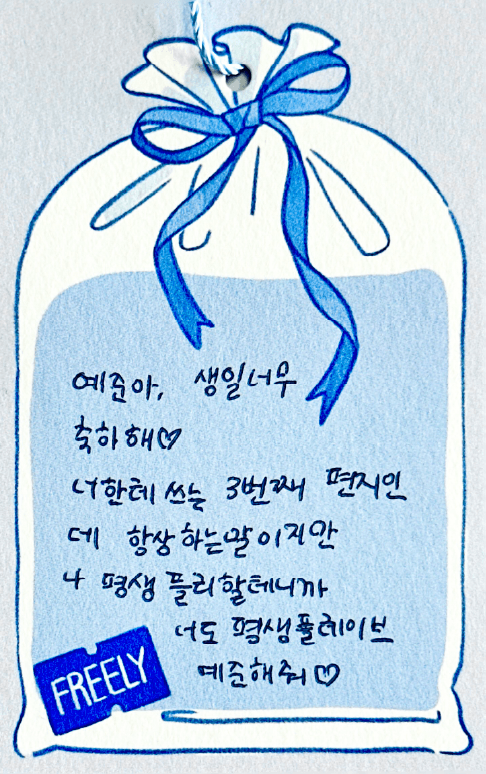 예준아, 생일너무
축하해♡
너한테 쓰는 3번째 편지인
데 항상하는말이지만
나 평생 플리할테니까
너도 평생플레이브
예준해줘♡
FREELY